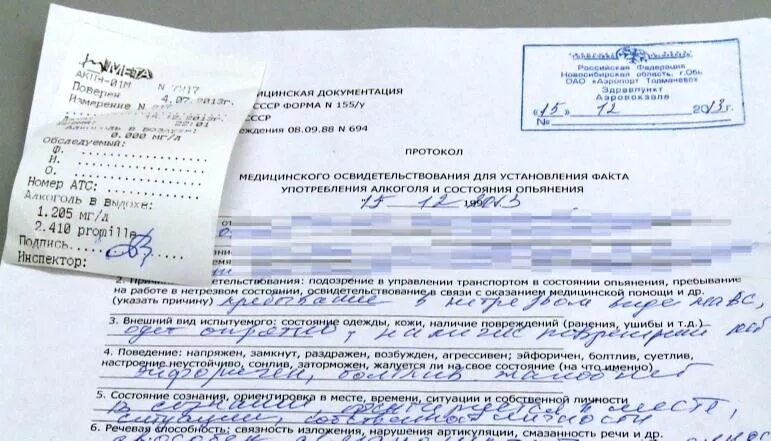 МЕТА
АКПЭ-01М N 7217
Поверен 4.07.2013г.
Измерение N
14.12.2013г.
22:01
Алкоголь в воздухе:
0.000 мг/л
Обследуемый:
Ф.
И.
О.
Номер АТС:
Алкоголь в выдохе:
1.205 мг/л
2.410 promille
Подпись
Инспектор:
ИЦИНСКАЯ ДОКУМЕНТАЦИЯ
СССР ФОРМА N 155/у
СССР
ждения 08.09.88 N 694
Российская Федерация
Новосибирская область, г.Обь
ОАО «Аэропорт Толмачево»
Здравпункт
Аэровокзале
«15» 12 2013г.
№
ПРОТОКОЛ
МЕДИЦИНСКОГО ОСВИДЕТЕЛЬСТВОВАНИЯ ДЛЯ УСТАНОВЛЕНИЯ ФАКТА
УПОТРЕБЛЕНИЯ АЛКОГОЛЯ И СОСТОЯНИЯ ОПЬЯНЕНИЯ
15 12 2013
от
2. етельствования: подозрение в управлении транспортом в состоянии опьянения, пребывание
на работе в нетрезвом состоянии, освидетельствование в связи с оказанием медицинской помощи и др.
(указать причину) пребывание в нетрезвом виде на ВС,
3. Внешний вид испытуемого: состояние одежды, кожи, наличие повреждений (ранения, ушибы и т.д.)
одет опрятно,
4. Поведение: напряжен, замкнут, раздражен, возбужден, агрессивен; эйфоричен, болтлив, суетлив,
настроение неустойчиво, сонлив, заторможен, жалуется ли на свое состояние (на что именно)
эйфоричен, болтлив, жалоб нет
5. Состояние сознания, ориентировка в месте, времени, ситуации и собственной личности
в сознании, ориентируется в месте,
ситуации собственной личности
6. Речевая способность: связность изложения, нарушения артикуляции, смазанность речи и др.